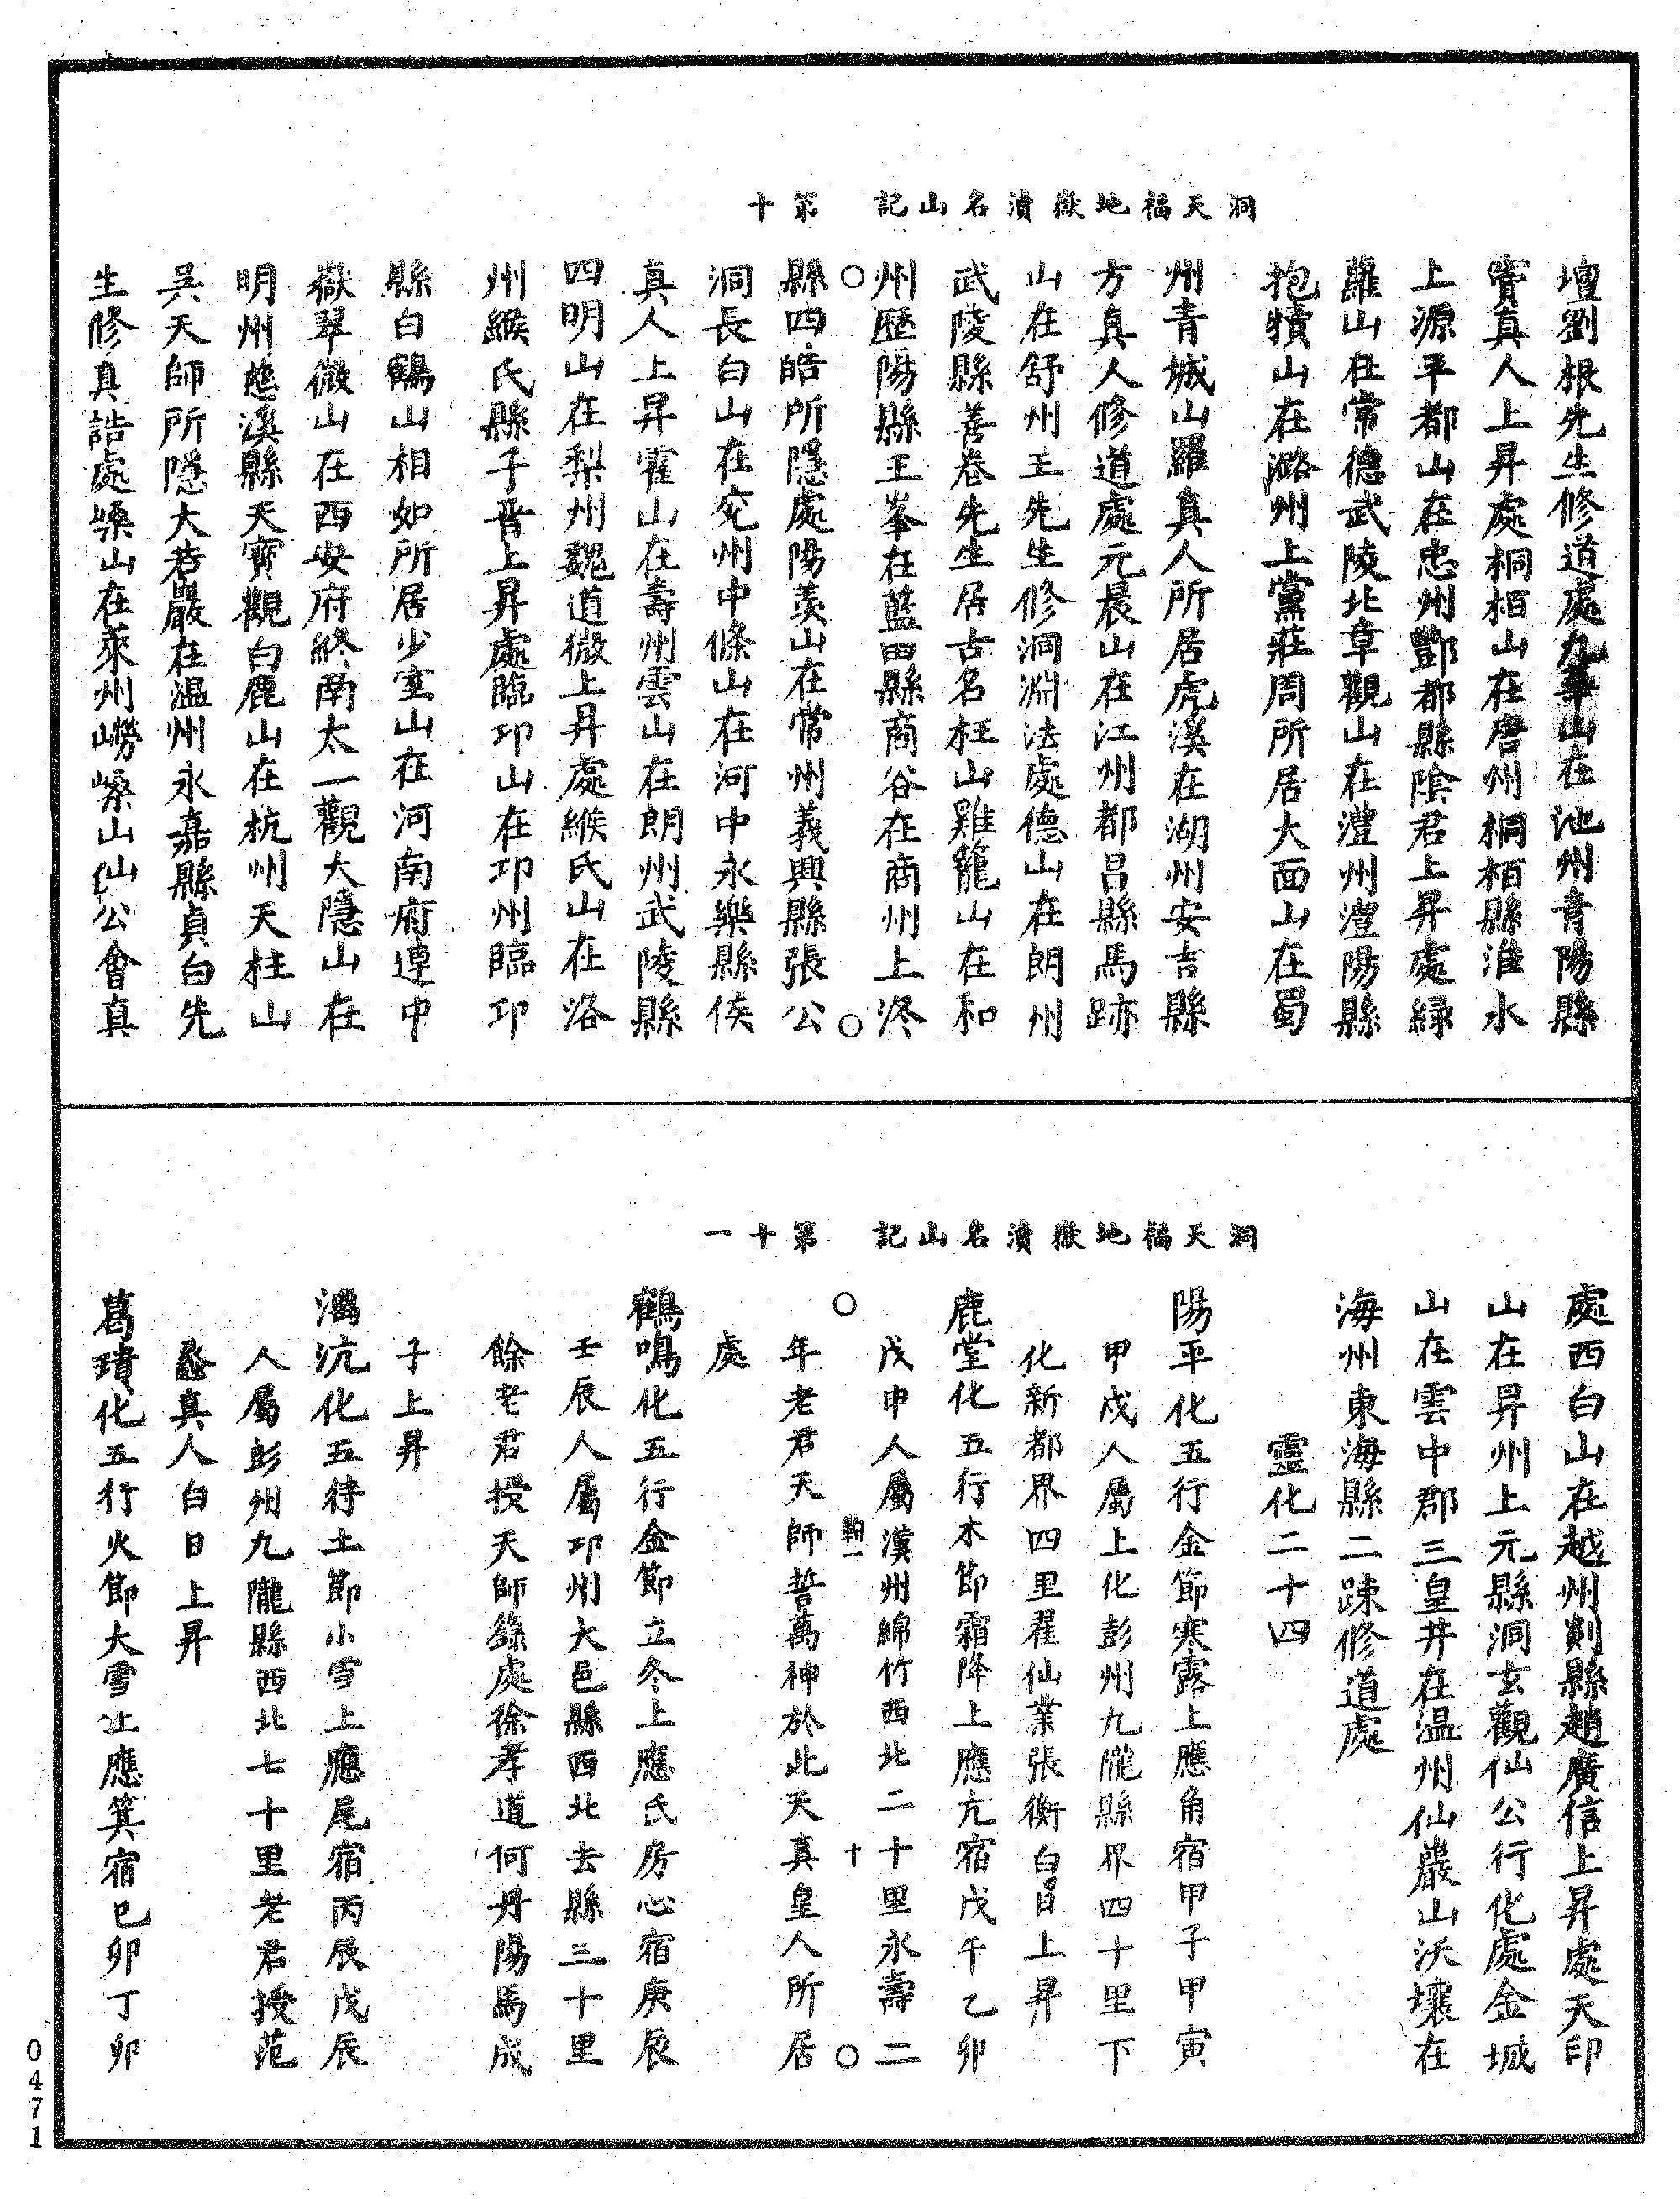 洞天福地嶽瀆名山記　第十
壇劉根先生修道處九華山在池州青陽縣
竇真人上昇處桐柏山在唐州桐柏縣淮水
上源平都山在忠州酆都縣陰君上昇處綠
蘿山在常德武陵北章觀山在澧州澧陽縣
抱犢山在潞州上黨莊周所居大面山在蜀
州青城山羅真人所居虎溪在湖州安吉縣
方真人修道處元晨山在江州都昌縣馬跡
山在舒州王先生修洞淵法處德山在朗州
武陵縣善卷先生居古名枉山雞籠山在和
州歷陽縣王峯在藍田縣商谷在商州上洛
縣四皓所隱處陽羨山在常州義興縣張公
洞長白山在兗州中條山在河中永樂縣侯
真人上昇霍山在壽州雲山在朗州武陵縣
四明山在梨州魏道微上昇處緱氏山在洛
州緱氏縣子晉上昇處臨卭山在卭州臨卭
縣白鶴山相如所居少室山在河南府連中
嶽翠微山在西安府終南太一觀大隱山在
明州慈溪縣天寶觀白鹿山在杭州天柱山
吳天師所隱大若巖在溫州永嘉縣貞白先
生修真誥處嶗山在萊州嶗山仙公會真
洞天福地嶽瀆名山記　第十一
處西白山在越州剡縣趙廣信上昇處天印
山在昇州上元縣洞玄觀仙公行化處金城
山在雲中郡三皇井在溫州仙巖山沃壤在
海州東海縣二踈修道處
靈化二十四
陽平化五行金節寒露上應角宿甲子甲寅
甲戌人屬上化彭州九隴縣界四十里下
化新都界四里翟仙業張衡白日上昇
鹿堂化五行木節霜降上應亢宿戊午乙卯
戊申人屬漢州綿竹西北二十里永壽二
鞠一　十
年老君天師誓萬神於此天真皇人所居
處
鶴鳴化五行金節立冬上應氐房心宿庚辰
壬辰人屬卭州大邑縣西北去縣三十里
餘老君授天師籙處徐孝道何丹陽馬成
子上昇
漓沆化五待土節小雪上應尾宿丙辰戊辰
人屬彭州九隴縣西北七十里老君授范
蠡真人白日上昇
葛璝化五行火節大雪上應箕宿巳卯丁卯
0471